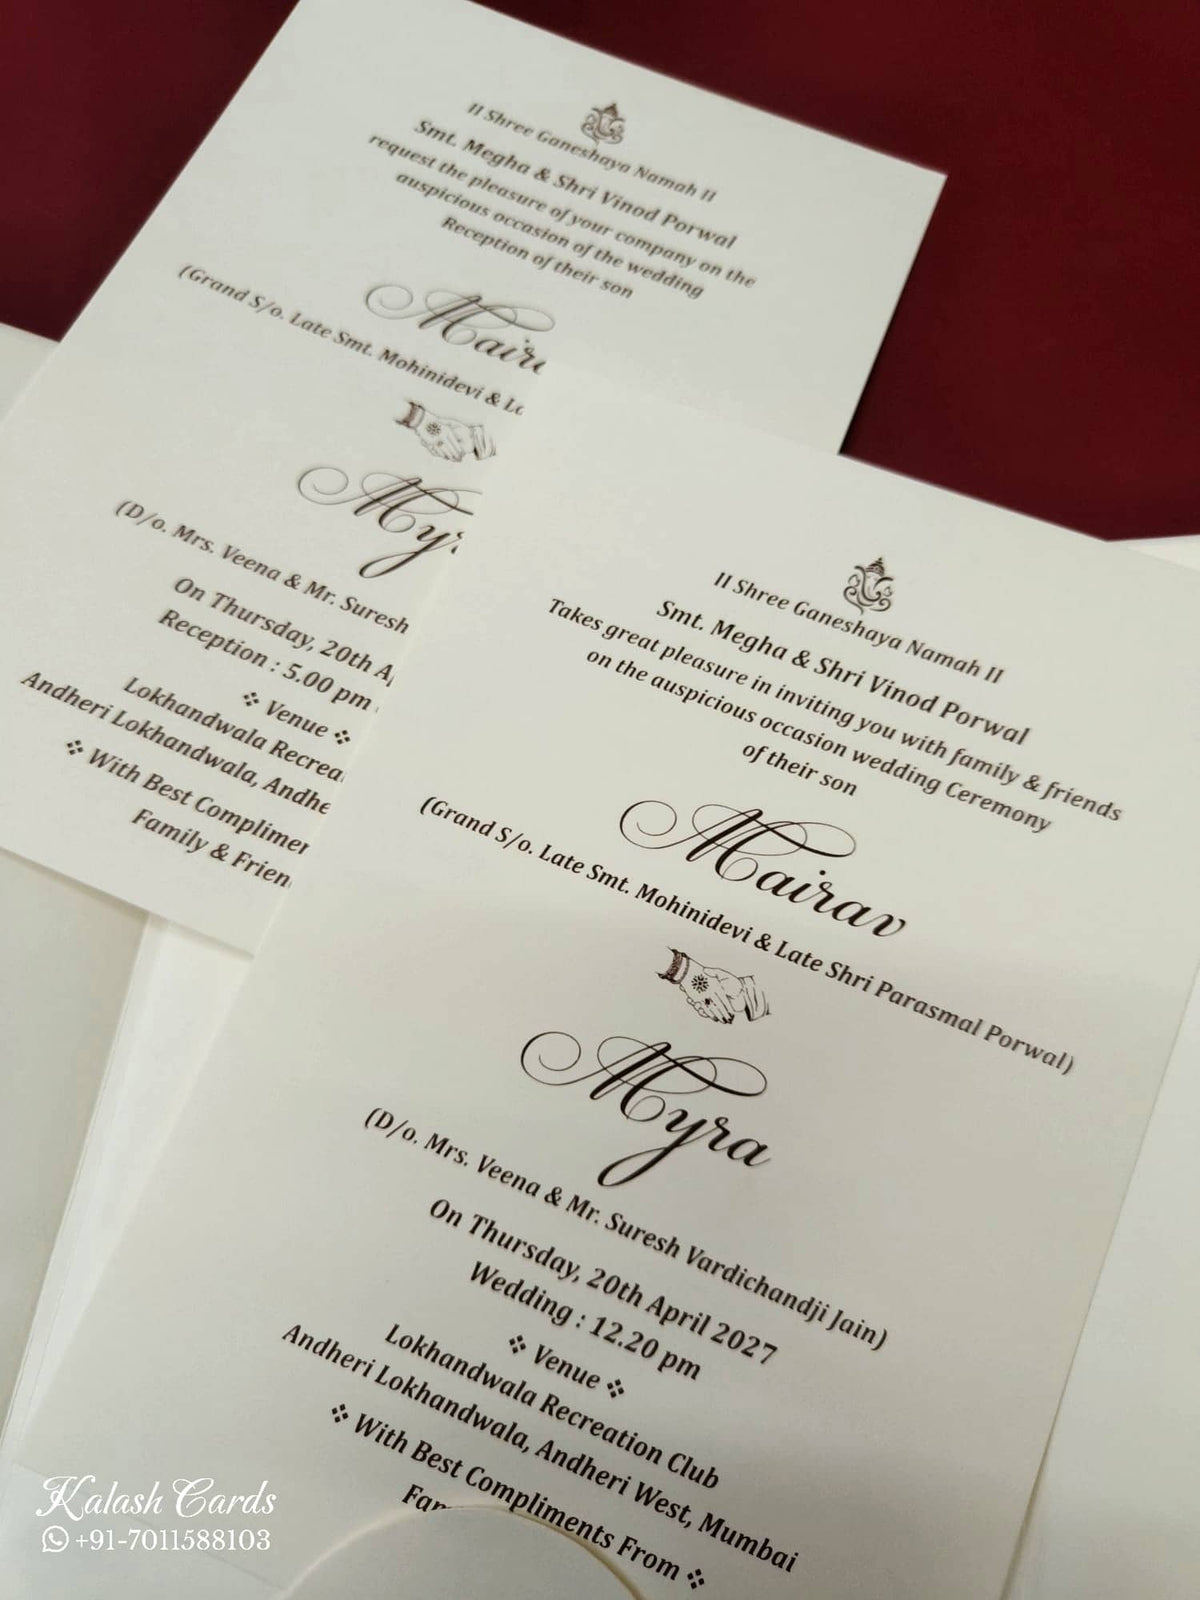 II Shree Ganeshaya Namah II
Smt. Megha & Shri Vinod Porwal
request the pleasure of your company on the
auspicious occasion of the wedding
Reception of their son
Mair
(Grand S/o. Late Smt. Mohinidevi &
My
(D/o. Mrs. Veena & Mr. Suresh
On Thursday, 20th A
Reception : 5.00 pm
❖ Venue ❖
Lokhandwala Recrea
Andheri Lokhandwala, Andhe
❖ With Best Complimen
Family & Frien
II Shree Ganeshaya Namah II
Smt. Megha & Shri Vinod Porwal
Takes great pleasure in inviting you with family & friends
on the auspicious occasion wedding Ceremony
of their son
Mairav
(Grand S/o. Late Smt. Mohinidevi & Late Shri Parasmal Porwal)
Myra
(D/o. Mrs. Veena & Mr. Suresh Vardichandji Jain)
On Thursday, 20th April 2027
Wedding : 12.20 pm
❖ Venue ❖
Lokhandwala Recreation Club
Andheri Lokhandwala, Andheri West, Mumbai
❖ With Best Compliments From ❖
Fam
Kalash Cards
+91-7011588103